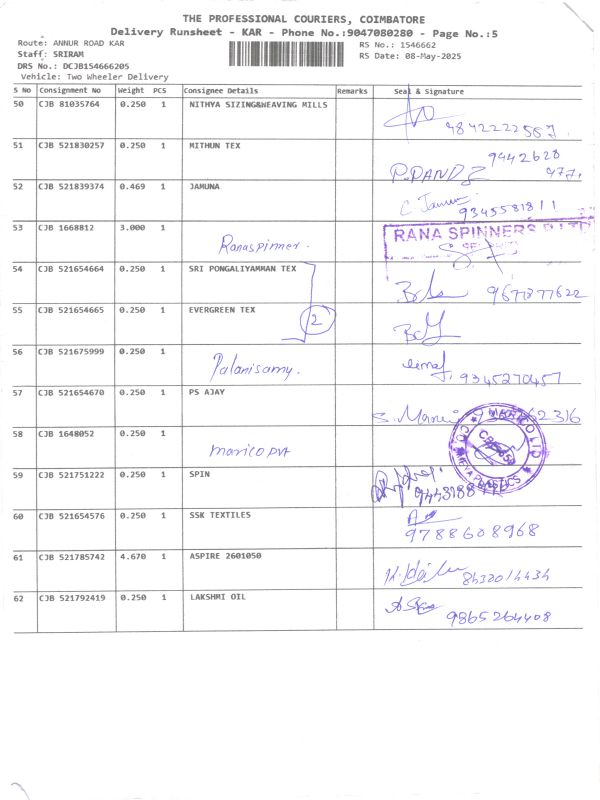 THE PROFESSIONAL COURIERS, COIMBATORE
Delivery Runsheet - KAR - Phone No.:9047080280 - Page No.:5
Route: ANNUR ROAD KAR RS No.: 1546662
Staff: SRIRAM RS Date: 08-May-2025
DRS No.: DCJB154666205
Vehicle: Two Wheeler Delivery
S No Consignment No Weight PCS Consignee Details Remarks Seal & Signature
50 CJB 81035764 0.250 1 NITHYA SIZING&WEAVING MILLS
51 CJB 521830257 0.250 1 MITHUN TEX
9442628
477.
52 CJB 521839374 0.469 1 JAMUNA
9345581811
53 CJB 1668812 3.000 1
Ranaspinner.
RANA SPINNERS
54 CJB 521654664 0.250 1 SRI PONGALIYAMMAN TEX
9677877622
55 CJB 521654665 0.250 1 EVERGREEN TEX
2
56 CJB 521675999 0.250 1
Palanisamy.
9345270457
57 CJB 521654670 0.250 1 PS AJAY
58 CJB 1648052 0.250 1
Marico pvt
PLASTICS
59 CJB 521751222 0.250 1 SPIN
60 CJB 521654576 0.250 1 SSK TEXTILES
9788608968
61 CJB 521785742 4.670 1 ASPIRE 2601050
62 CJB 521792419 0.250 1 LAKSHMI OIL
9865264408